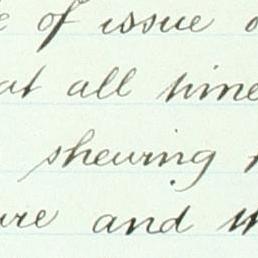 of issue
at all time
shewing
and